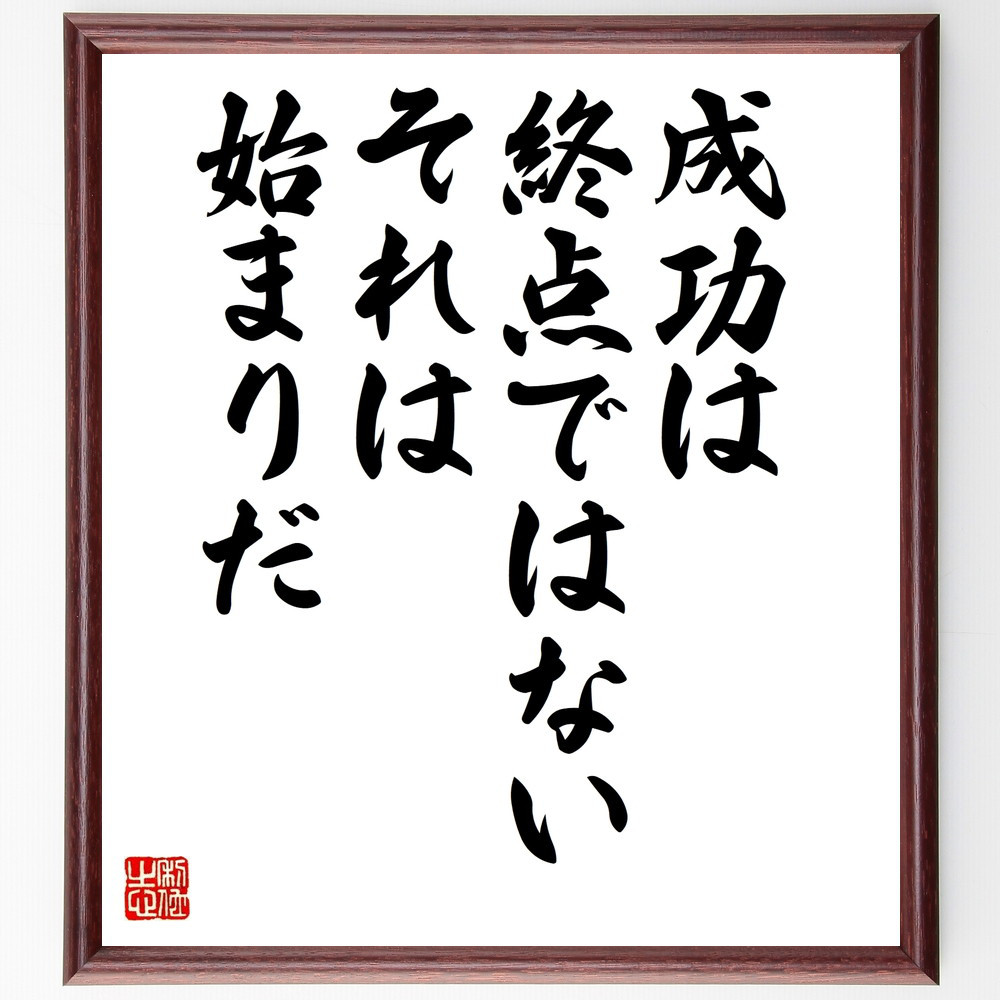 成功は
終点ではない
それは
始まりだ